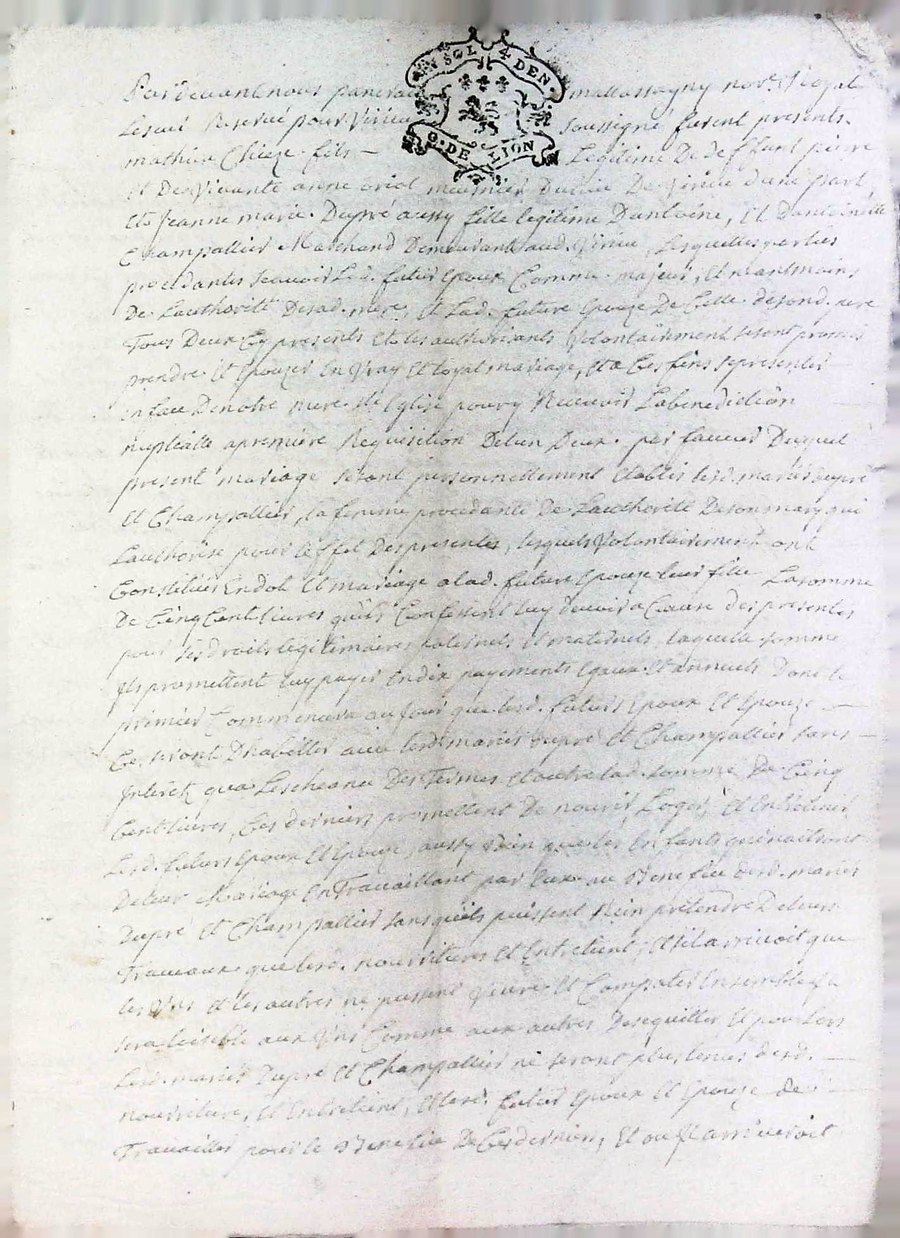 UN SOL 4 DEN.
G. DE LION
Pardevant nous pancrace mattassagny nore Royal
Reservé pour Virieu soussigné furent presents
mathieu Chieze fils – Legitime De deffunt pierre
Et De Vivante anne meusnier Dudit De Virieu dune part,
Et Jeanne marie Dupré aussy fille legitime Dantoine, Et Dantoinette
Champallier Marchand Demeurant aud. Virieu, Lesquelles parties
procedantes scavoir Led. futur Epoux Comme majeur, Et
De Lauthorité Desad. mere, Et Lad. future Epouze De Celle desond. pere
Tous Deux Cy presents Et les authorisants Volontairement se sont promis
prendre Et Epouzer En Vray Et loyal mariage, Et a Ces fins se presenter
En face De notre mere Ste Eglise pour y Recevoir La benediction
nuptialle a premiere Requisition De lun Deux. par faveur Duquel
present mariage se sont personnellement Etablis lesd. mariés dupré
Et Champallier, la femme procedante de Lauthorité De son mary qui
Lauthorise pour Leffet Des presentes, lesquels Volontairement ont
Constitués En dot Et mariage a lad. future Epouze leur fille La somme
De Cinq Cent livres quils Confessent luy devoir a Cause des presentes
pour ses droits legitimaires paternels Et maternels, laquelle somme
Ils promettent luy payer En dix payements Egaux Et annuels Dont le
premier Commencera au jour que lesd. futurs Epoux Et Epouze –
Se seront Dhabiller avec lesd. mariés dupré Et Champallier sans –
Interet qua Lescheance Des Termes Et outre lad. somme De Cinq
Cent livres, Ces derniers promettent De nourir, Loger, Et Entretenir
Lesd. futurs Epoux Et Epouze, aussy bien que les Enfants qui naitront
De leur Mariage En Travaillant par Eux au Benefice desd. mariés
Dupré Et Champallier sans quils puissent Rien pretendre De leurs
Travaux que lesd. nourritures Et Entretient, Et sil arrivoit que
les Uns Et les autres ne pussent Vivre Et Compatir Ensemble Il
sera loisible aux Uns Comme aux autres De sequiller, Et pour lors
Lesd. mariés Dupré Et Champallier ne seront plus tenus desd. –
nourriture, Et Entretient, Et lesd. futurs Epoux Et Epouze de
Travailler pour le Benefice De Ces derniers, Et ou Il arriveroit